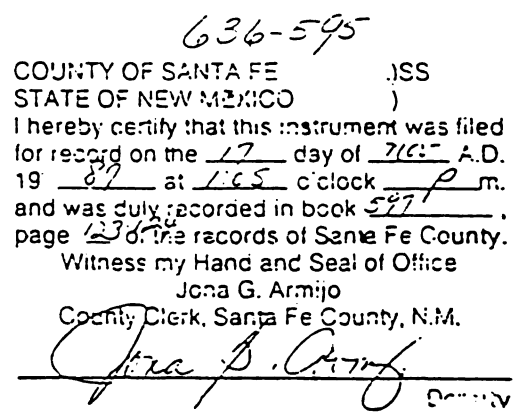 636-595
COUNTY OF SANTA FE )SS
STATE OF NEW MEXICO )
I hereby certify that this instrument was filed
for record on the 17 day of A.D.
19 87 at o'clock p m.
and was duly recorded in book 597,
page of the records of Santa Fe County.
Witness my Hand and Seal of Office
Jona G. Armijo
County Clerk, Santa Fe County, N.M.
Jona G. Armijo
Deputy